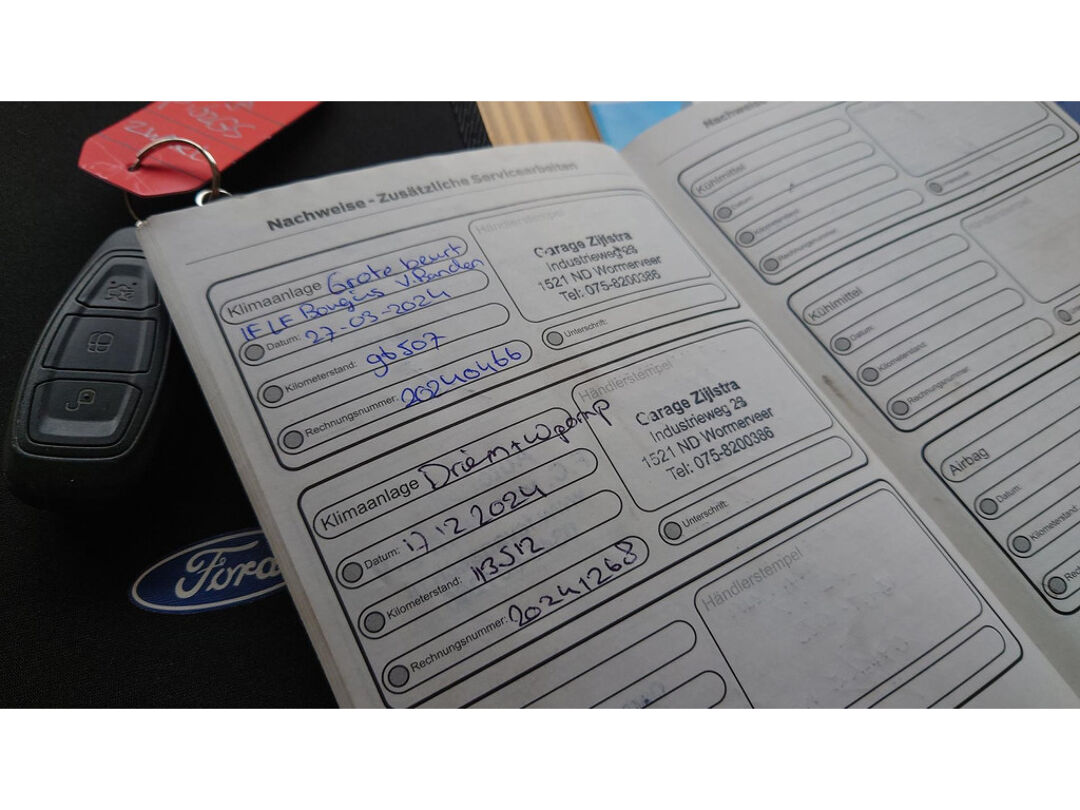 Nachweise - Zusätzliche Servicearbeiten
Klimaanlage Grote beurt
Bougies V.Banden
Datum: 27-03-2024
Kilometerstand: 96507
Rechnungsnummer: 20240466
Händlerstempel
Garage Zijlstra
Industrieweg 28
1521 ND Wormerveer
Tel: 075-8200386
Unterschrift:
Klimaanlage Driem + Wpomp
Datum: 17 12 2024
Kilometerstand: 113512
Rechnungsnummer: 20241268
Händlerstempel
Garage Zijlstra
Industrieweg 28
1521 ND Wormerveer
Tel: 075-8200386
Unterschrift:
Händlerstempel
Nachweise
Kühlmittel
Datum:
Kilometerstand:
Rechnungsnummer:
Kühlmittel
Datum:
Kilometerstand:
Rechnungsnummer:
Airbag
Datum:
Kilometerstand:
Ford